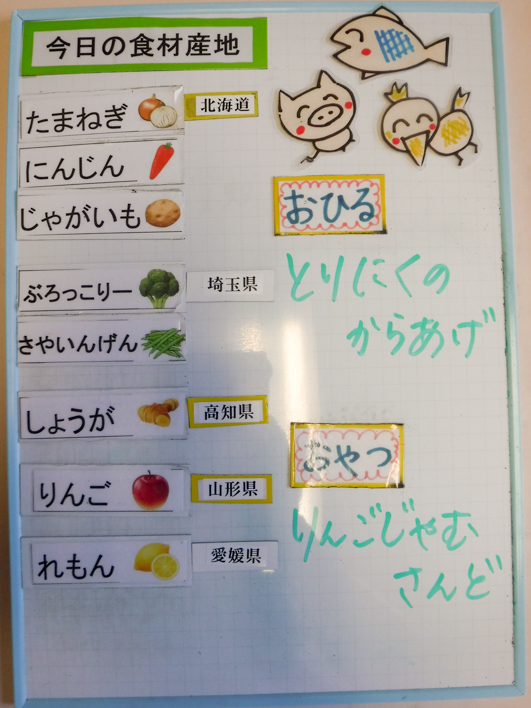 今日の食材産地
たまねぎ 北海道
にんじん
じゃがいも
ぶろっこりー 埼玉県
さやいんげん
しょうが 高知県
りんご 山形県
れもん 愛媛県
おひる
とりにくの
からあげ
おやつ
りんごじゃむ
さんど